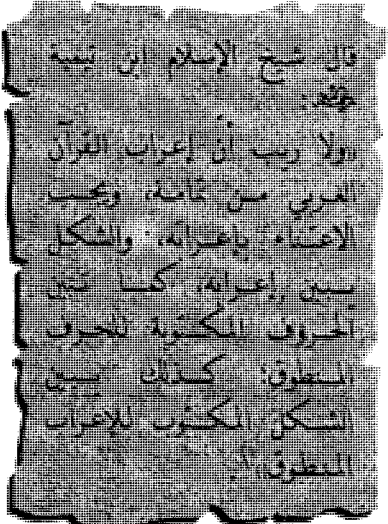 قال شيخ الإسلام ابن تيمية
:
«ولا ريب أن إعراب القرآن
العربي من تمامه، ويجب
الاعتناء بإعرابه، والشكل
يبين إعرابه، كما تبين
الحروف المكتوبة للحرف
المنطوق؛ كذلك يبين
الشكل المكتوب للإعراب
المنطوق».